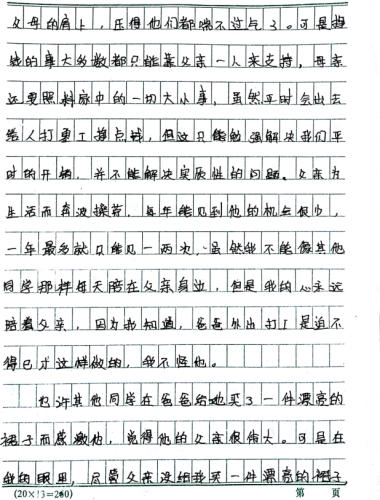 父母的肩上，压得他们都喘不过气了。可是挣
钱的事大多数都只能靠父亲一人来支持，母亲
还要照料家中的一切大小事，虽然平时会出去
给人打重工挣点钱，但这只能勉强解决我们平
时的开销，并不能解决实质性的问题。父亲为
生活而奔波操劳，每年能见到他的机会很少，
一年最多就只能见一两次，虽然我不能像其他
同学那样每天陪在父亲身边，但是我的心永远
陪着父亲，因为我知道，爸爸外出打工是迫不
得已才这样做的，我不怪他。
也许其他同学在爸爸给她买了一件漂亮的
裙子而感激他，觉得他的父亲很伟大。可是在
我的眼里，尽管父亲没给我买一件漂亮的裙子
(20×13=260) 第 页